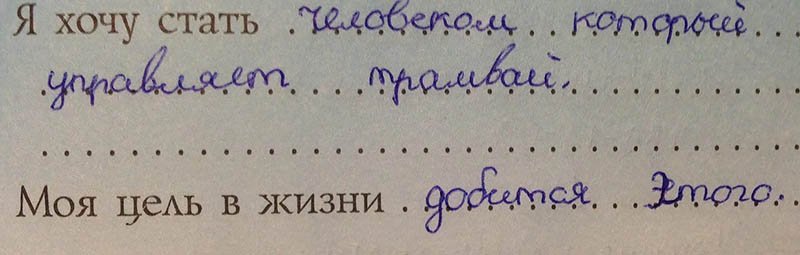 Я хочу стать человеком который
управляет трамвай.
Моя цель в жизни добится этого.